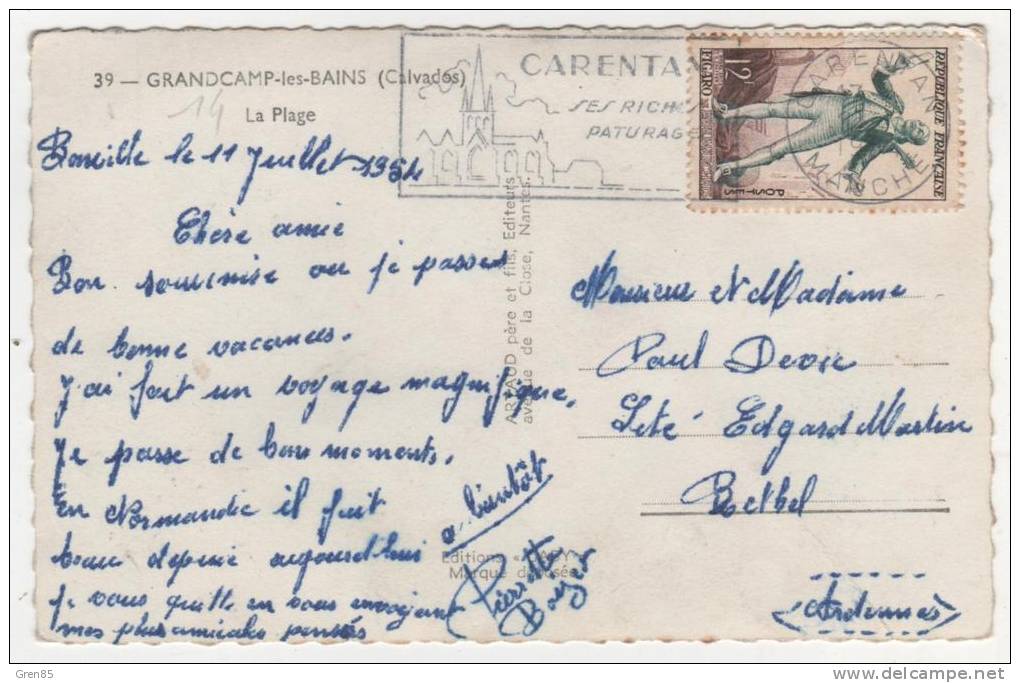 39 — GRANDCAMP-les-BAINS (Calvados)
La Plage
le 11 Juillet 1954
Chère amie
Bon souvenire ou je passes
de bonne vacances.
J'ai fait un voyage magnifique,
Je passe de bon moments.
En Normandie il fait
beau depuie aujourd'hui
Je vous quitte en vous envoyant
mes plus amicales pensés
a bientôt
Pierrette
ARTAUD père et fils, Editeurs
avenue de la Close, Nantes.
Editions «
Marque déposée
CARENTAN
SES RICHES
PATURAGES
CARENTAN
MANCHE
12F
FIGARO
REPUBLIQUE FRANÇAISE
POSTES
Monsieur et Madame
Paul
Cité Edgard Martin
Rethel
(Ardennes)
Gren85
www.delcampe.net